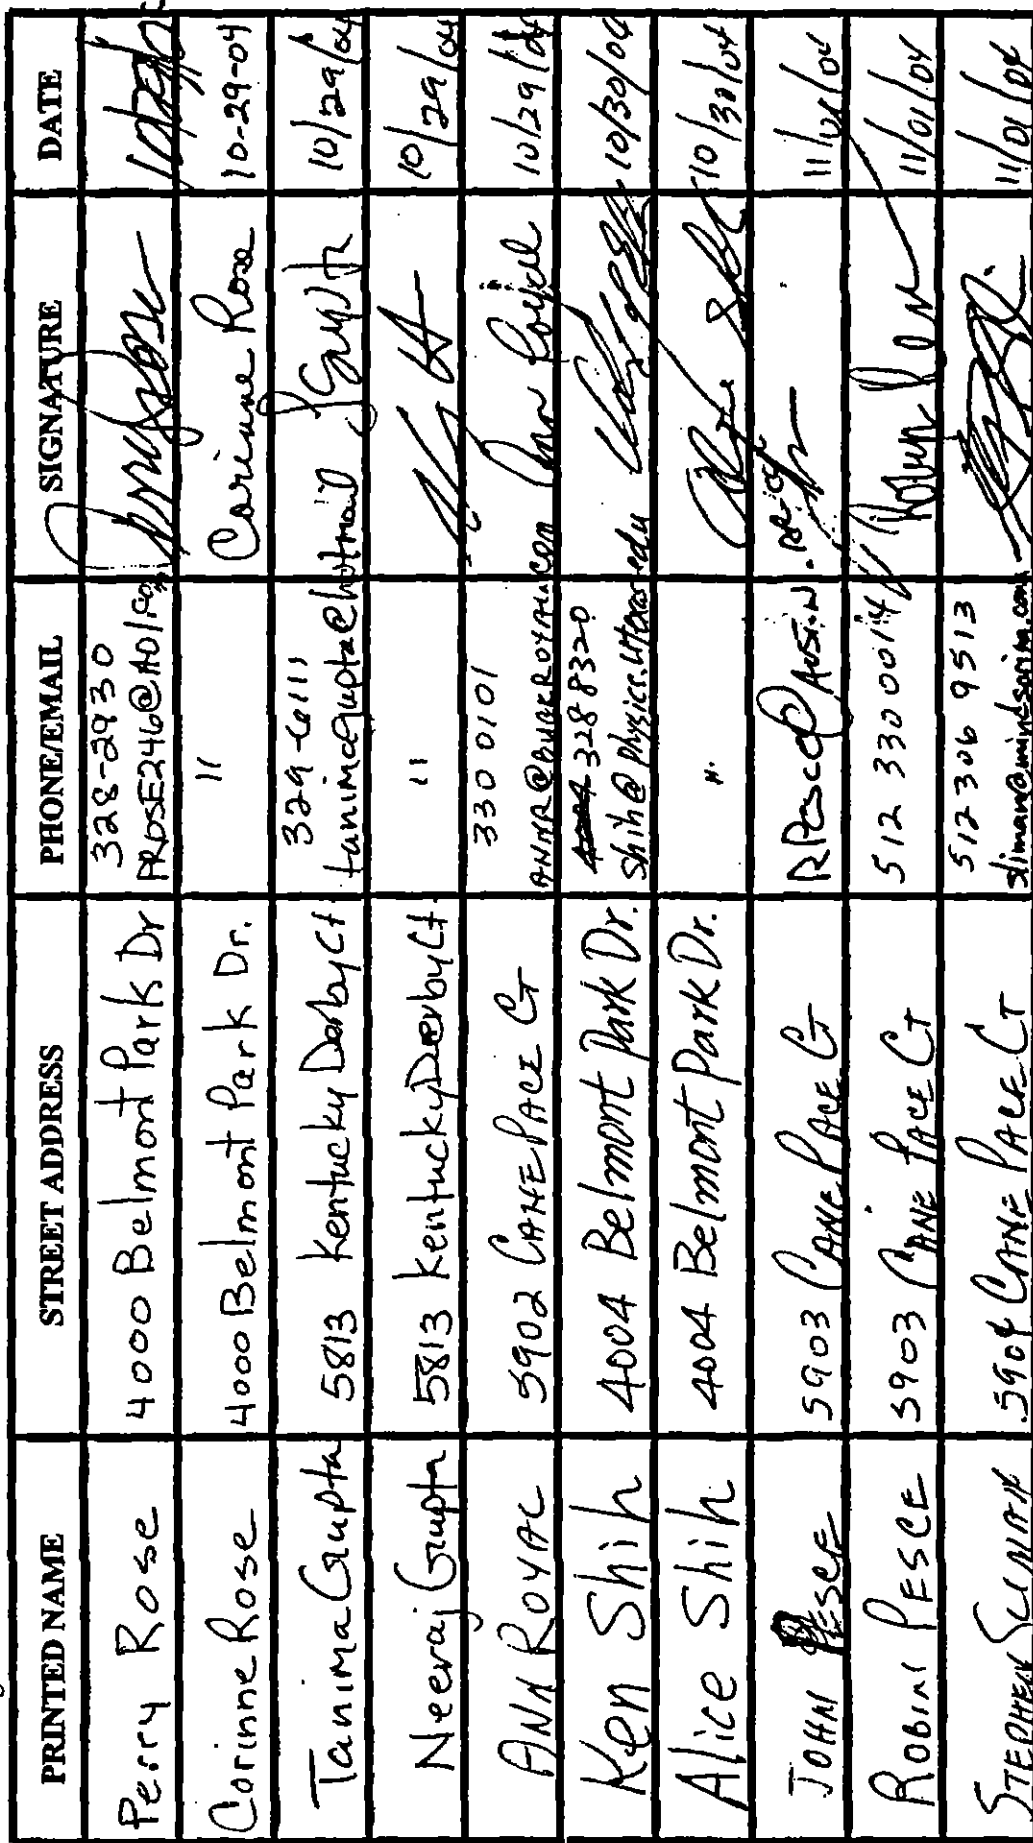 PRINTED NAME STREET ADDRESS PHONE/EMAIL SIGNATURE DATE
Perry Rose 4000 Belmont Park Dr 328-2930
PROSE246@AOL.com
Corinne Rose 4000 Belmont Park Dr. " Corinne Rose 10-29-04
Tanima Gupta 5813 Kentucky Derby Ct 329-6111 TGupta 10/29/04
tanimagupta@hotmail
Neeraj Gupta 5813 Kentucky Derby Ct " 10/29/04
ANN ROYAL 5902 CANE PACE CT 330 0101 Ann Royal 10/29/04
Ken Shih 4004 Belmont Park Dr. 328 8320 10/30/04
Shih@physics.utexas.edu
Alice Shih 4004 Belmont Park Dr. " Alice Shih 10/30/04
JOHN PESCE 5903 CANE PACE CT RPesce@Austin.rr.com 11/01/04
ROBIN PESCE 5903 CANE PACE CT 512 330 0014 Robin Pesce 11/01/04
STEPHEN SLIMAN 5904 CANE PACE CT 512 306 9513 11/01/04